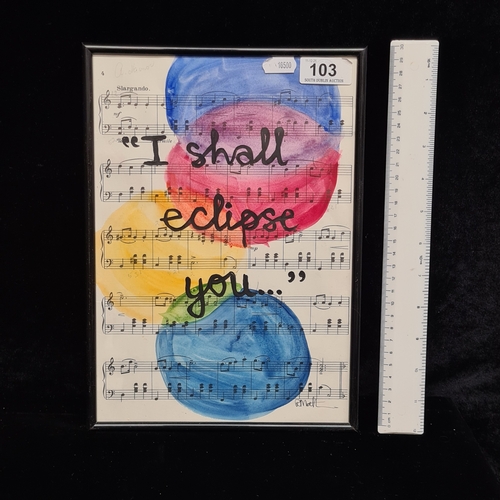 16500
103
SOUTH DUBLIN AUCTION
6
Slargando.
mf
"I shall
eclipse
you..."